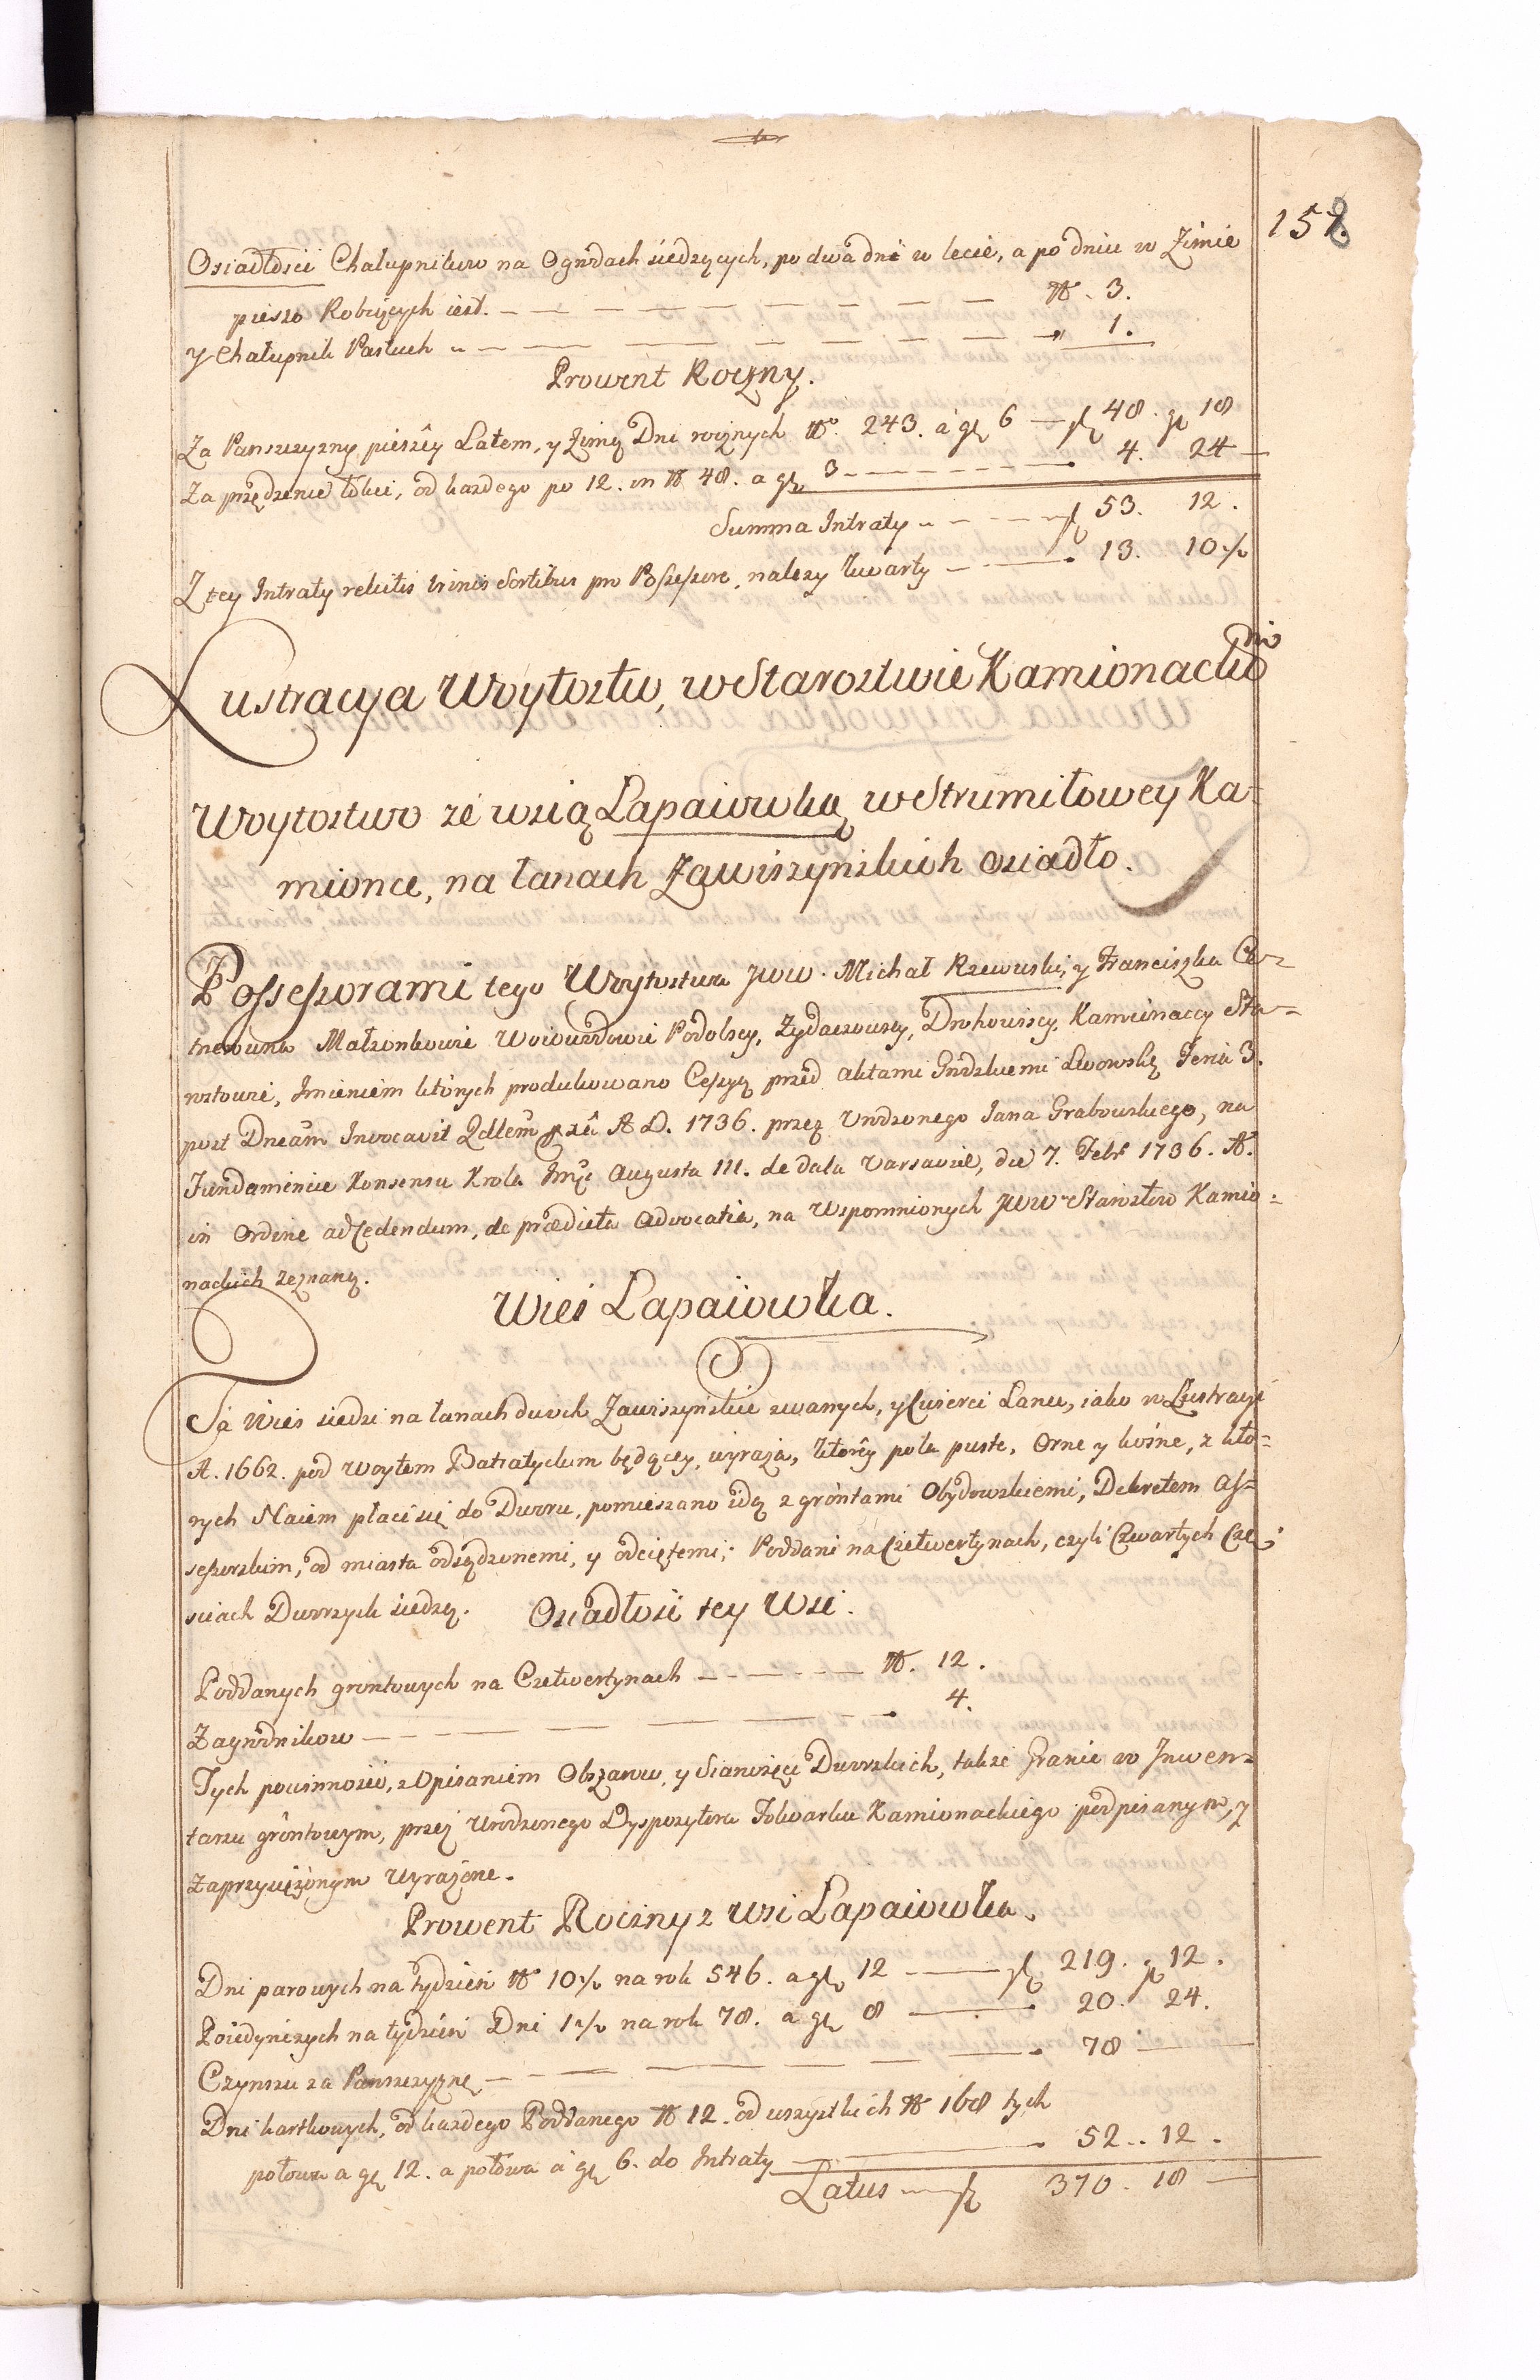 158.
Osiadłości Chałupnikow na Ogrodach siedzących, po dwa dni w lecie, a po dniu w Zimie
pieszo Robiących iest. — — — — — — — № 3.
y Chałupnik Pastuch — — — — — — — 1.
Prowent Roczny.
Za Panszczyznę pieszey Latem, y Zimą Dni rocznych № 243. a gr 6 — zł 48. gr 18
Za przędzenie łokci, od każdego po 12. in № 48. a gr 3 — — — — 4. 24 —
Summa Intraty — — — zł 53. 12.
Z tey Intraty relictis trinis Sortibus pro Possessore, należy kwarty — — 13. 10½
Lustracya Woytostw, w Starostwie Kamionackim
Woytostwo ze wsią Łapaiowką w Strumiłowey Ka-
mionce, na łanach Zawiszyńskich osiadło.
Possessorami tego Woytostwa JWW. Michał Rzewuski, y Franciszka Ce-
tnerowna Małżonkowie Woiewodowie Podolscy, Żydaczowscy, Drohowiscy, Kamionaccy Sta-
rostowie, Imieniem ktorych produkowano Cessyą przed aktami Grodzkiemi Lwowskę Feria 3.
post Dncam Invocavit Qdlem A. D. 1736. przez Urodzonego Jana Grabowskiego, na
Fundamencie Konsensu Krola Jmci Augusta III. de data Varsaviæ, die 7. Febr 1736. A.
in Ordine ad Cedendum, de prædicta Advocatia, na Wspomnionych JWW Starostow Kamio-
nackich zeznaną.
Wies Łapaiowka.
Ta Wies siedzi na łanach dwoch Zawiszyńskie zwanych, y Cwierci Łanu, iako w Lustracyi
A. 1662. pod woytem Batiatyckim będącey, wyraża, ktorey pola puste, orne y kośne, z kto-
rych Naiem płaci się do Dworu, pomieszano idą z grontami Obydowskiemi, Dekretem As-
sessorskim, od miasta odsądzonemi, y odciętemi; Poddani na Czetwertynach, czyli Czwartych Czę-
sciach Dworzyk siedzą. Osiadłość tey Wsi.
Poddanych grontowych na Czetwertynach — — — — № 12.
Zagrodnikow — — — — — — 4.
Tych powinności, z Opisaniem Obszarow, y Sianożęci Dworskich, także Granic w Inwen-
tarzu grontowym, przez Urodzonego Dyspozytora Folwarku Kamionackiego podpisanym, y
zaprzysiężonym wyrażone.
Prowent Roczny z wsi Łapaiowka.
Dni parowych na tydzień № 10½ na rok 546. a gr 12 — — zł 219. gr 12.
Poiedynczych na tydzień Dni 1½ na rok 78. a gr 8 — — 20. 24.
Czynszu za Panszczyznę — — — — — — 78 —
Dni kartkowych, od każdego Poddanego № 12. od wszystkich № 168 tych
połowa a gr 12. a połowa a gr 6. do Intraty — — 52. 12.
Latus — zł 370. 18 —